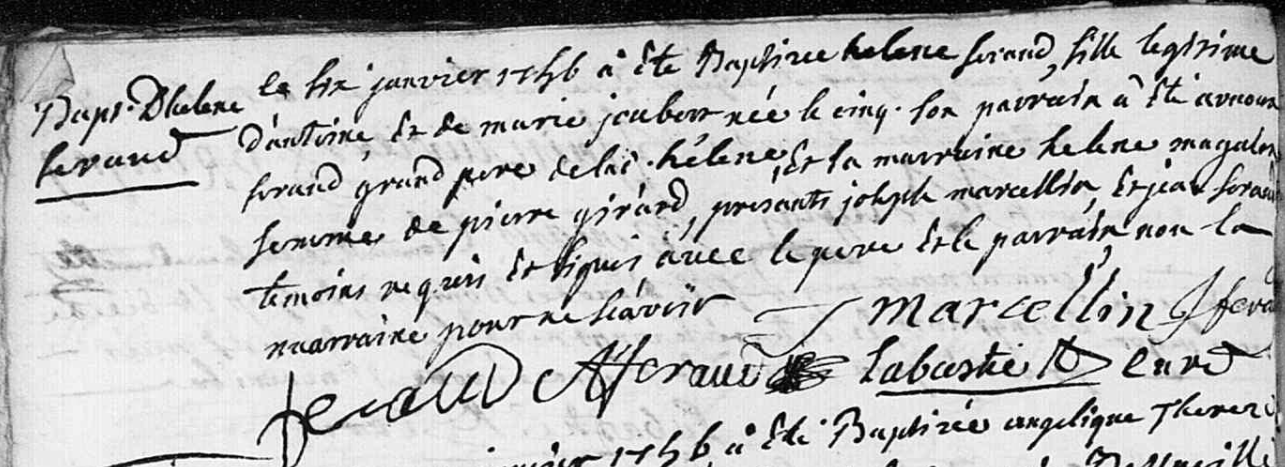 Bapt. D'helene
feraud
le six janvier 1746 a été Baptisee helene feraud, fille legitime
d'antoine et de marie joubert née le cinq. son parrain a été arnoux
feraud grand pere de lad. hélene, et la marraine helene magalon
femme de pierre girard, presents joseph marcellin, et jean feraud
temoins requis et signés avec le pere et le parrain, non la
marraine pour ne sçavoir
marcellin J fera
feraud A feraud labastie curé
janvier 1746 a été Baptisée angelique Therese